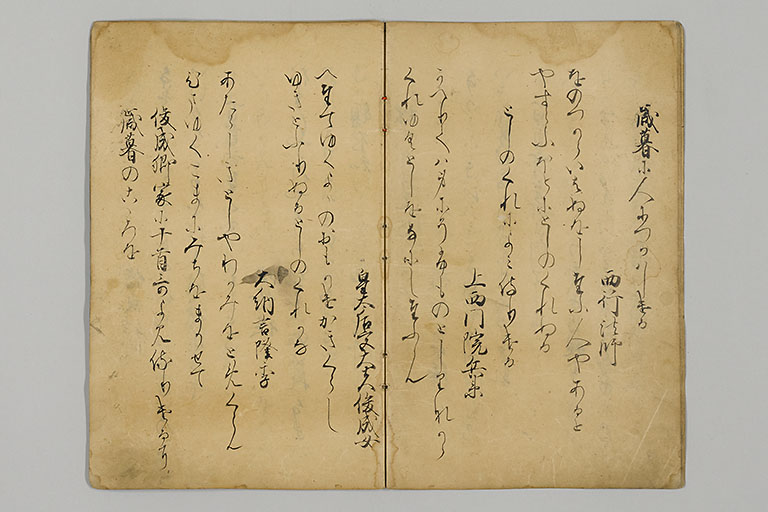 歳暮に人につかはしける
西行法師
をのつからいはぬをしたふ人やあると
やすらふほとにとしのくれぬる
としのくれによみ侍りける
上西門院兵衛
かへりてハ身にそふものとしりなから
くれゆくとしをなにしたふらん
皇太后宮大夫俊成女
へたてゆくよゝのおもかけかきくらし
ゆきとふりぬるとしのくれかな
大納言隆季
あたらしきとしやわかみをとめくらん
ひまゆくこまにみちをまかせて
俊成卿家に十首哥よみ侍りける
歳暮のこゝろを